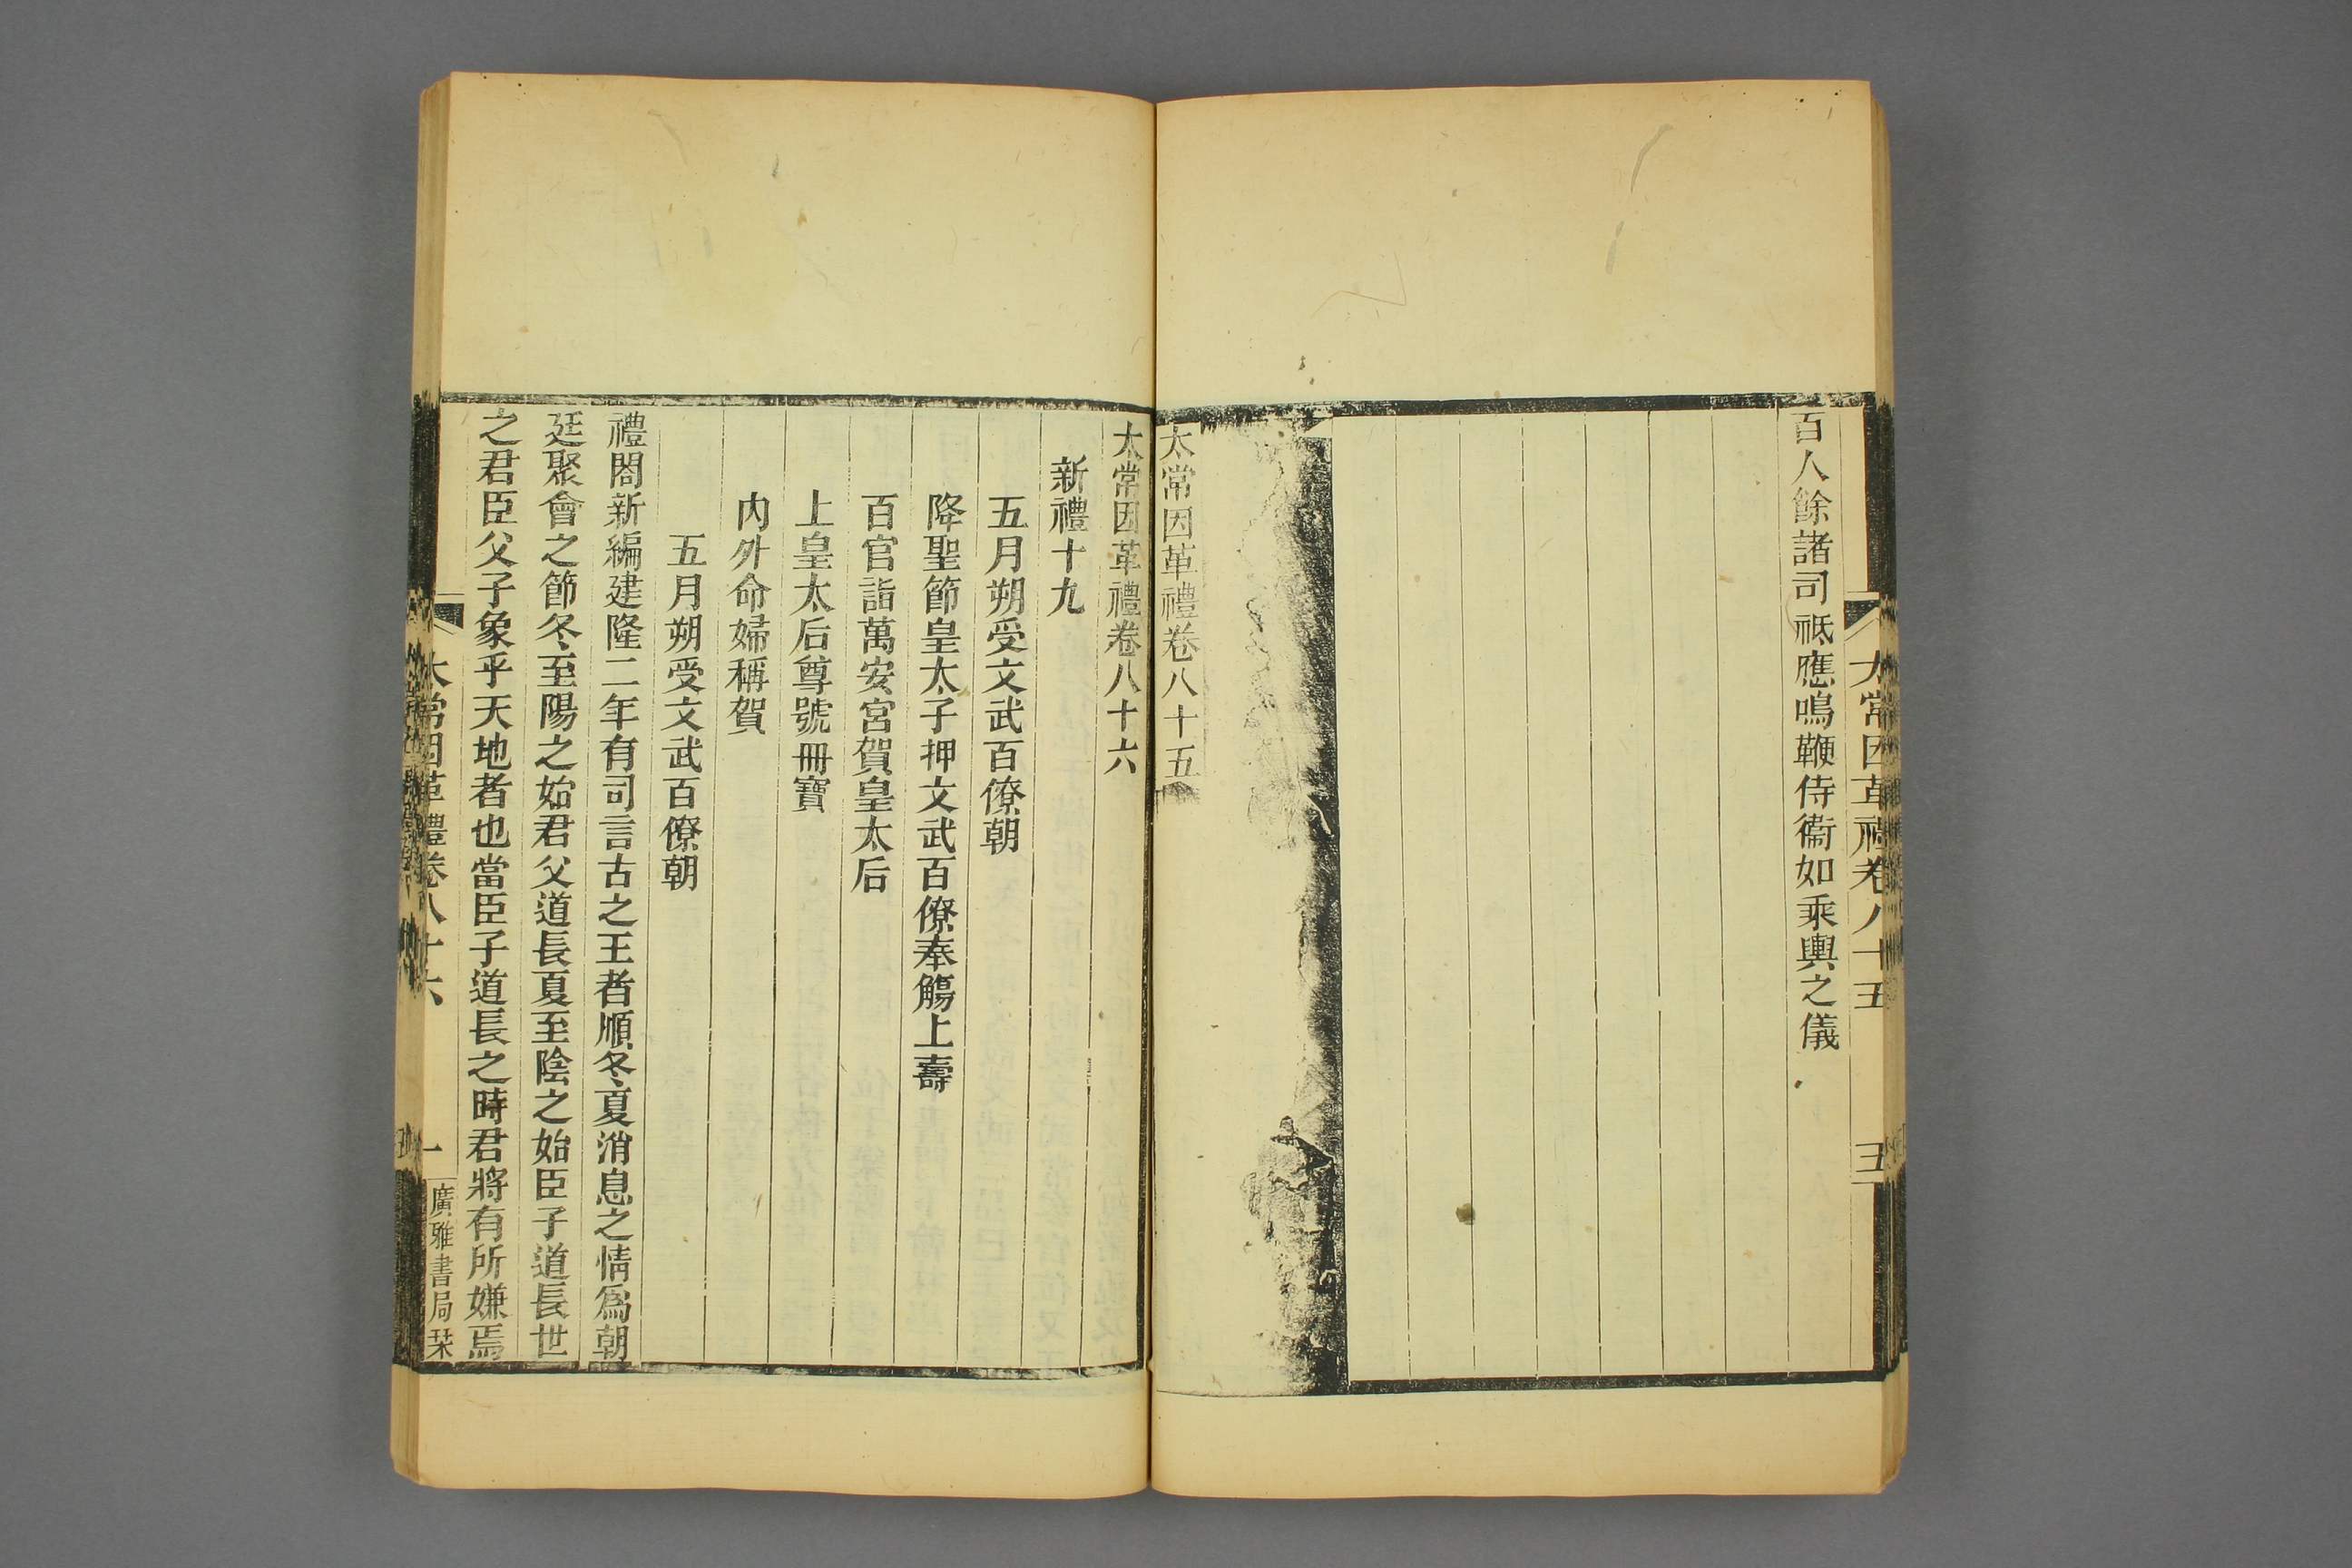 太常因革禮卷八十五
五
百人餘諸司祗應鳴鞭侍衞如乘輿之儀
太常因革禮卷八十五
太常因革禮卷八十六
新禮十九
五月朔受文武百僚朝
降聖節皇太子押文武百僚奉觴上壽
百官詣萬安宮賀皇太后
上皇太后尊號冊寶
内外命婦稱賀
五月朔受文武百僚朝
禮閣新編建隆二年有司言古之王者順冬夏消息之情爲朝
廷聚會之節冬至陽之始君父道長夏至陰之始臣子道長世
之君臣父子象乎天地者也當臣子道長之時君將有所嫌焉
太常因革禮卷八十六
一
廣雅書局栞